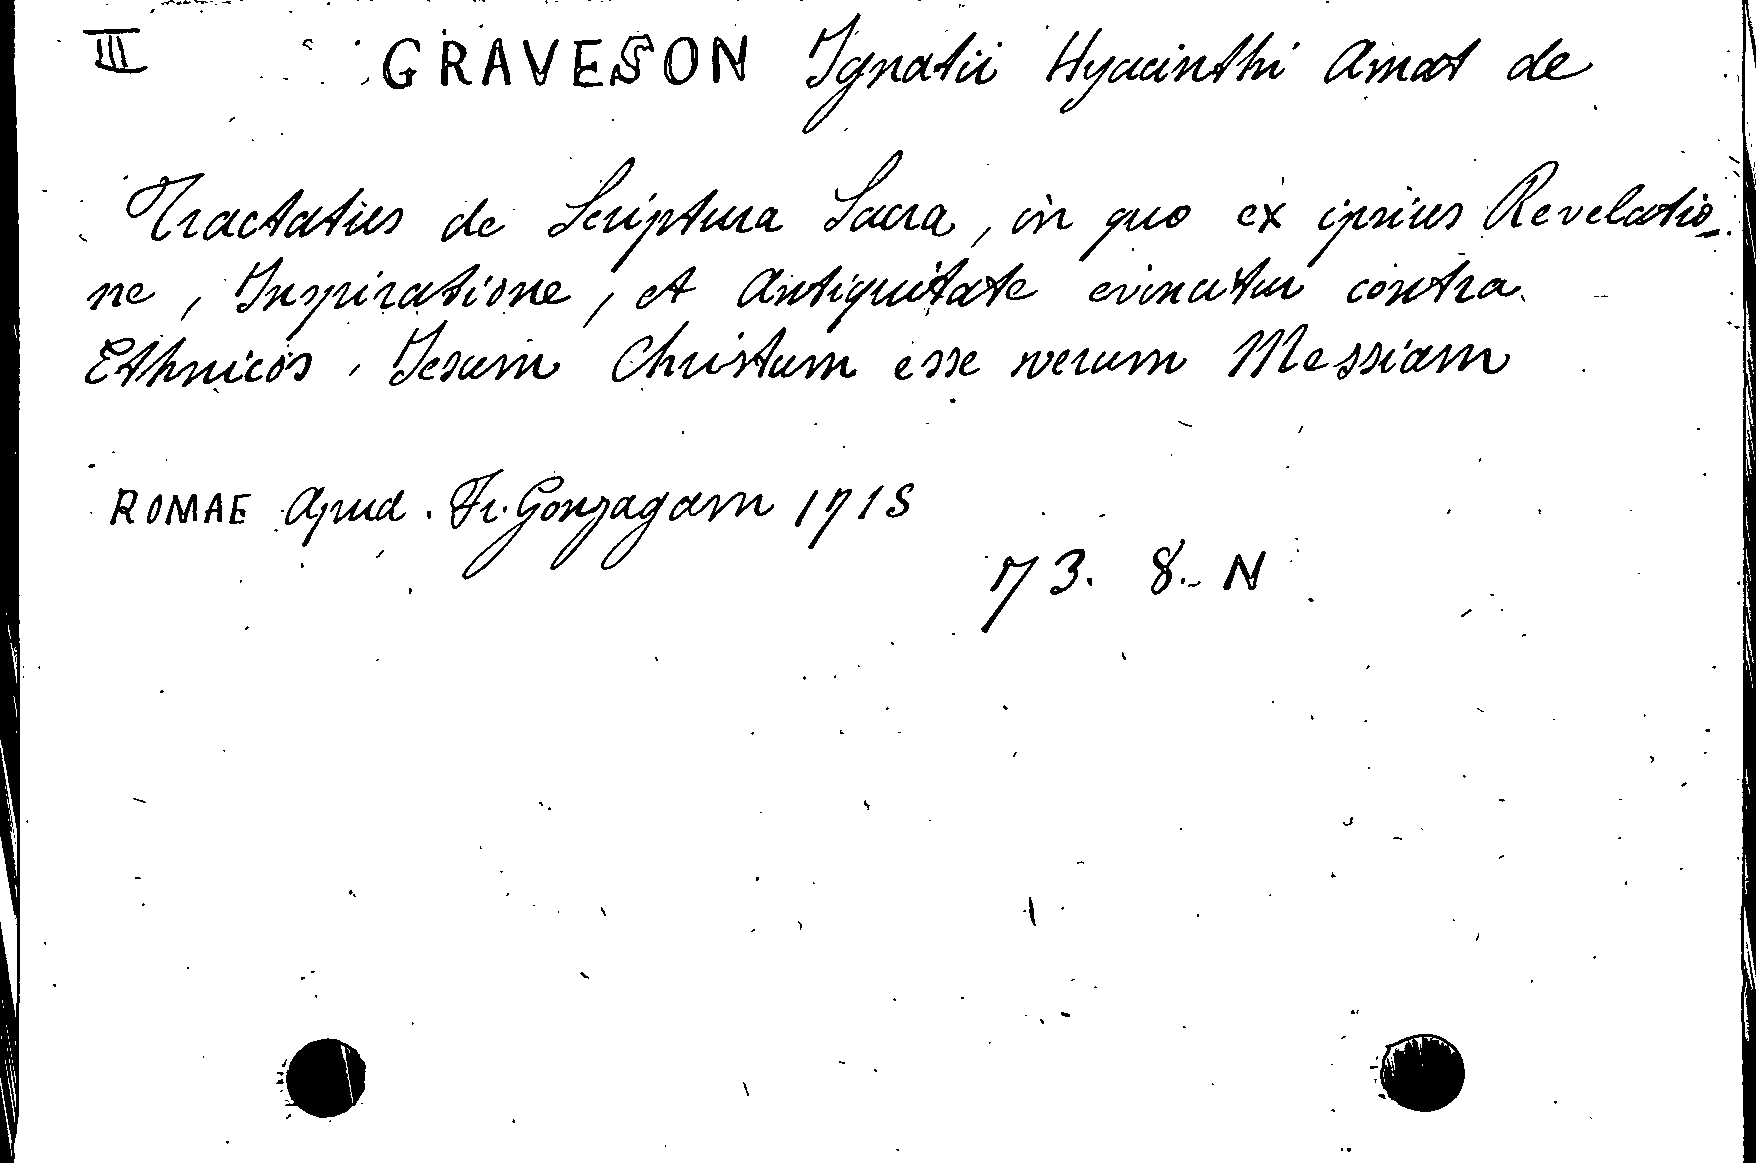 III GRAVESON Ignatii Hyacinthi Amat de
Tractatus de Scriptura Sacra, in quo ex ipsius Revelatio-
ne, Inspiratione, et Antiquitate evincitur contra
Ethnicos, Jesum Christum esse verum Messiam
ROMAE Apud. Fr. Gonzagam 1715
73. 8. N